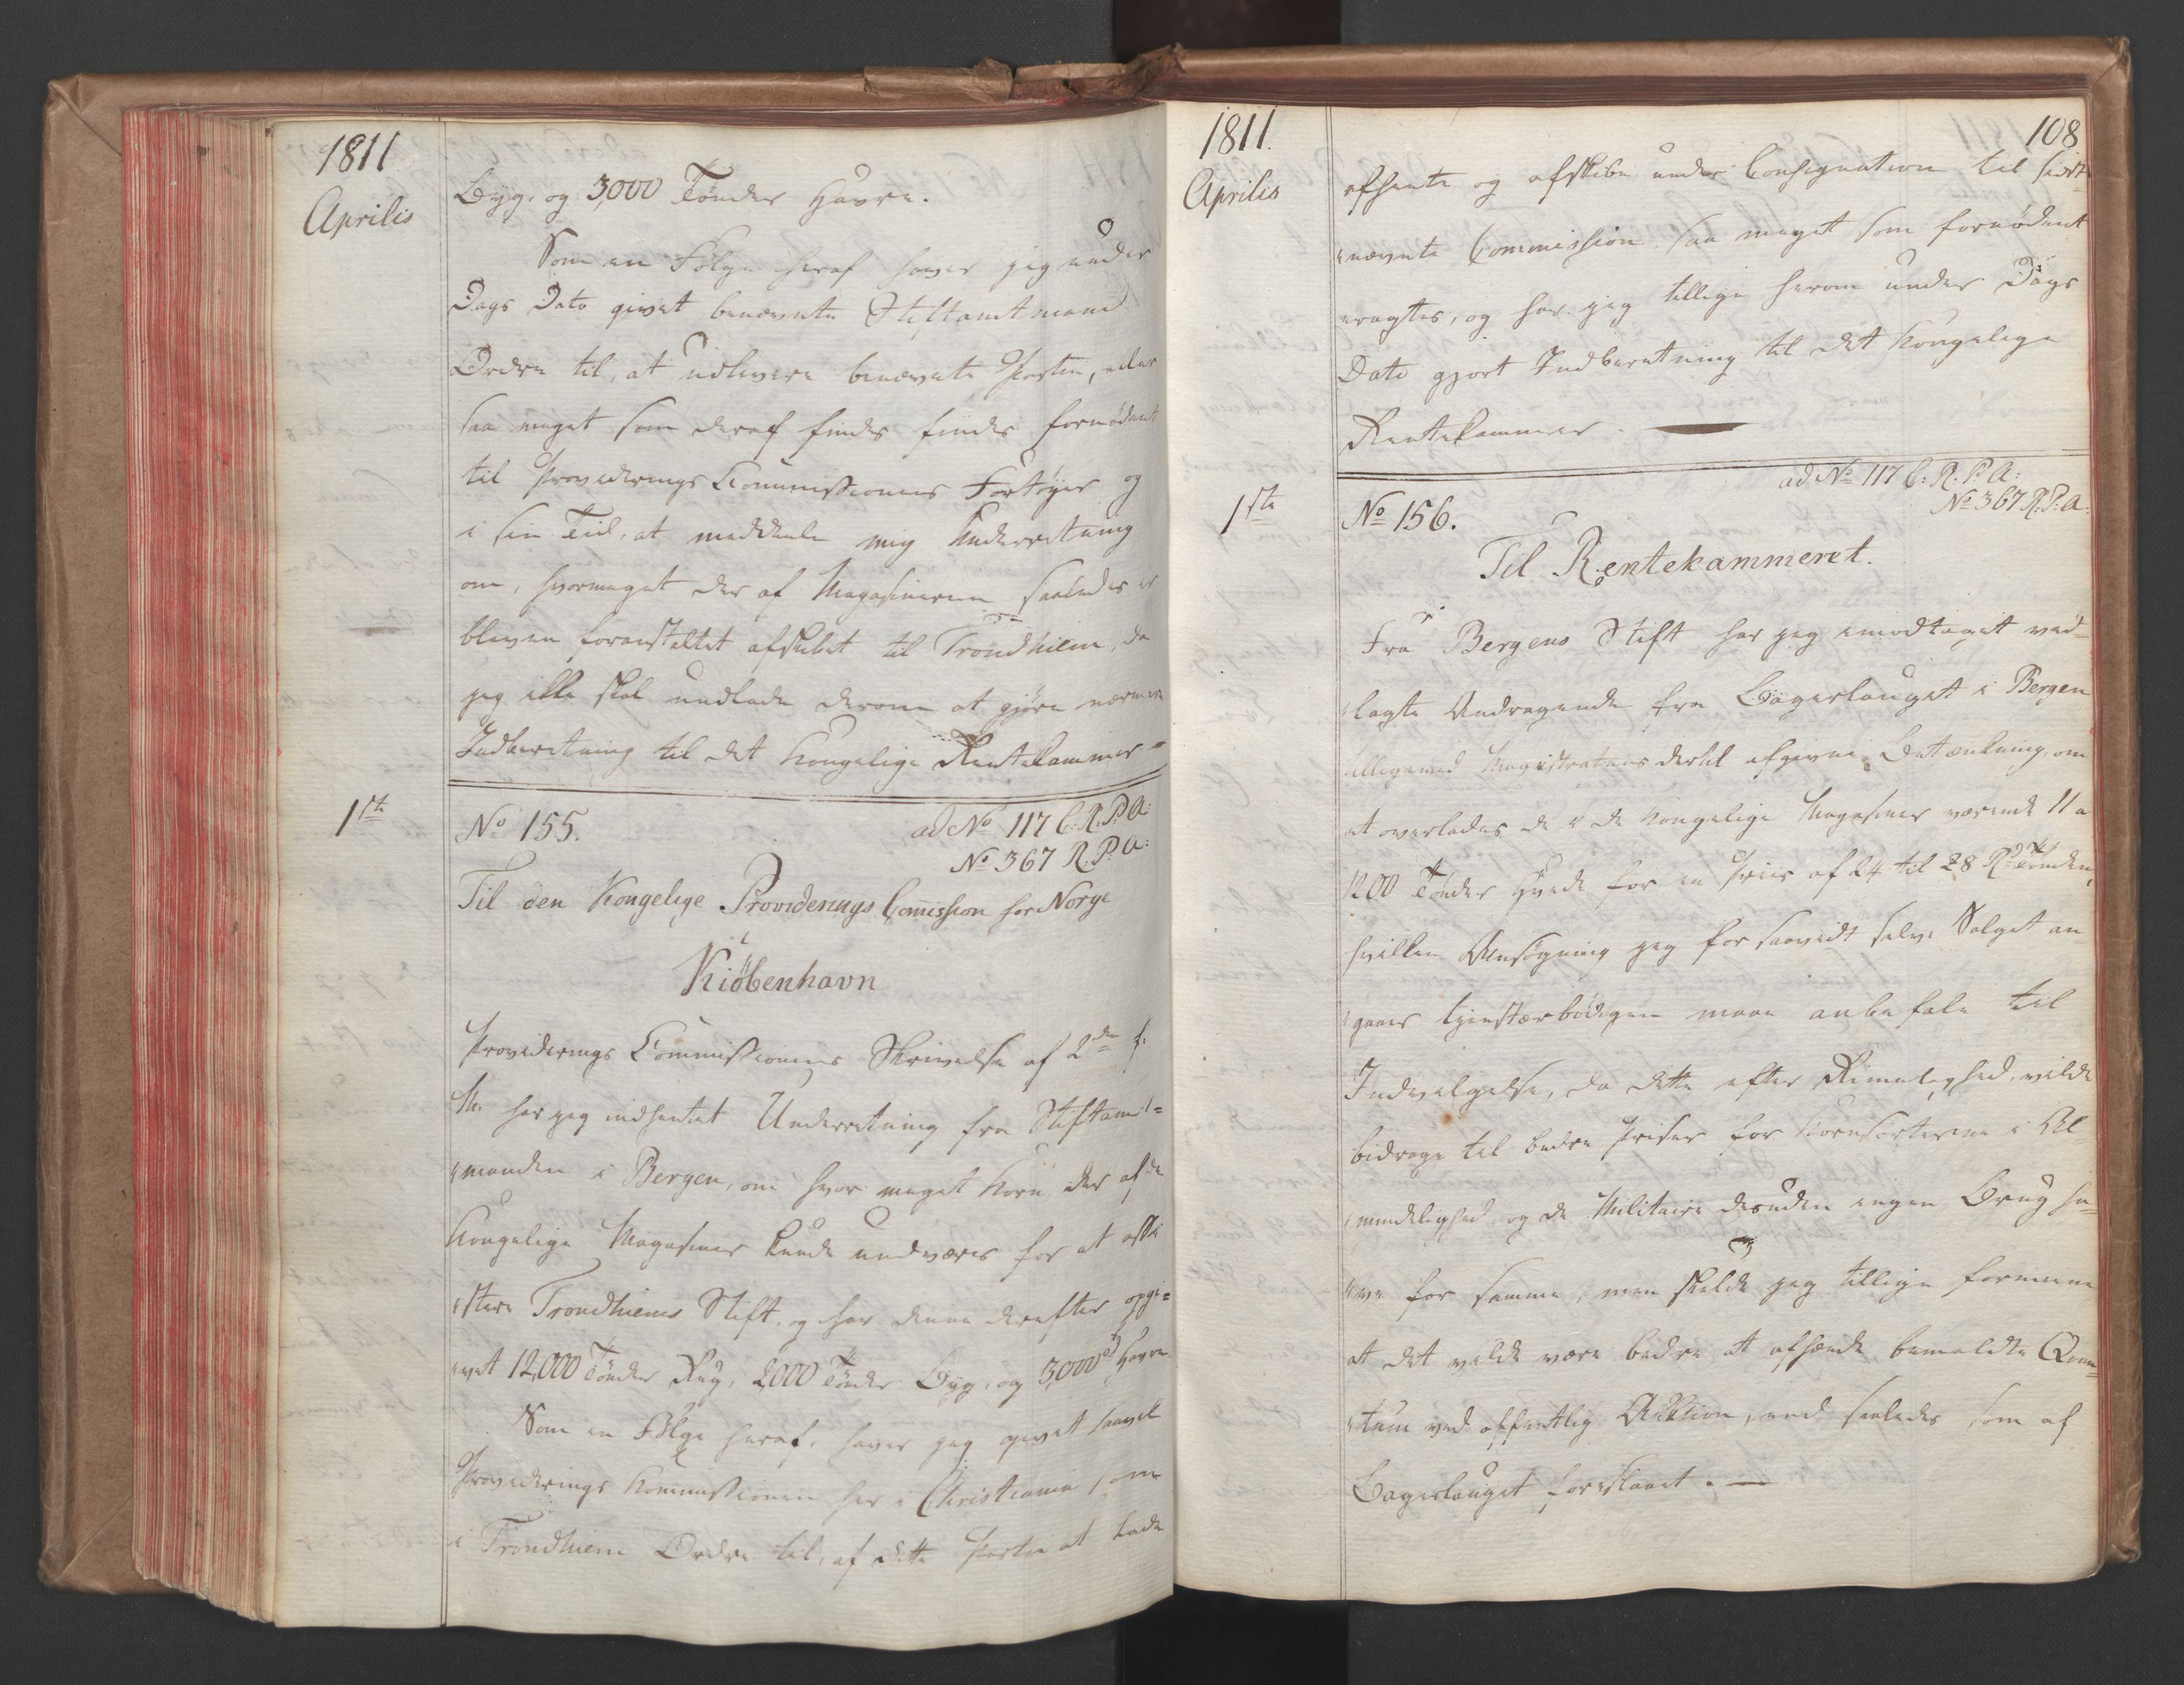 1811.
Aprilis
Byg, og 3,000 Tønder Havre.
Som en Følge heraf haver jeg under
Dags Dato givet benævnte Stiftamtmand
Ordre til, at udlevere benævnte Partie, eller
saa meget som deraf findes findes fornødent
til Providerings Commissionens Fartøyer og
i sin Tid, at meddeele mig Underretning
om, hvormeget der af Magasinerne saaledes er
bleven foranstaltet afskibet til Trondhiem, da
jeg ikke skal undlade derom at gjøre nærmere
Indberetning til det Kongelige Rentekammer
1ste
No 155.
ad No 117 C. R. P. A:
No 367 R. P. A:
Til den Kongelige Providerings Comission for Norge
Kiöbenhavn
Providerings Commissionens Skrivelse af 2den f.
M. har jeg indhentet Underretning fra Stiftamt=
manden i Bergen, om hvor meget Korn, der af de
Kongelige Magasiner kunde undværes for at assi
stere Trondhiems Stift, og har denne derefter opgi=
vet 12,000 Tønder Rug, 2,000 Tønder Byg, og 3,000 d Havre.
Som en Følge heraf, haver jeg givet saavel
Provideringskommissionen her i Christiania som
i Trondhiem Ordre til, af dette Partie at lade
1811.
108
Aprilis
afhente og afskibe under Consignation til sidst
nævnte Commission, saa meget som fornødent
eragtes, og har jeg tillige herom under Dags
Dato gjort Indberetning til det Kongelige
Rentekammer. —
1ste
ad No 117 C. R. P. A:
No 367 R. P. A:
No 156.
Til Rentekammeret.
Fra Bergens Stift har jeg imodtaget ved=
lagte Andragende fra Bagerlauget i Bergen
tilligemed Magistratens dertil afgivne Betænkning, om
at overlades de i de Kongelige Magasiner værende 11 a
1200 Tønder Hvede for en Priis af 24 til 28 Rd Tønden,
hvilken Ansøgning jeg forsaavidt selve Salget an
gaaer tjenstærbødigen maae anbefale til
Indvilgelse, da dette efter Rimelighed, vilde
bidrage til bedre Priser for Kornsorterne i Al
mindelighed, og de Militaire desuden ingen Brug ha=
ve for samme, men skulde jeg tillige formeene
at det vilde være bedre at afhænde bemeldte Qvan=
tum ved offentlig Auktion, end saaledes, som af
Bagerlauget foreslaaet. —